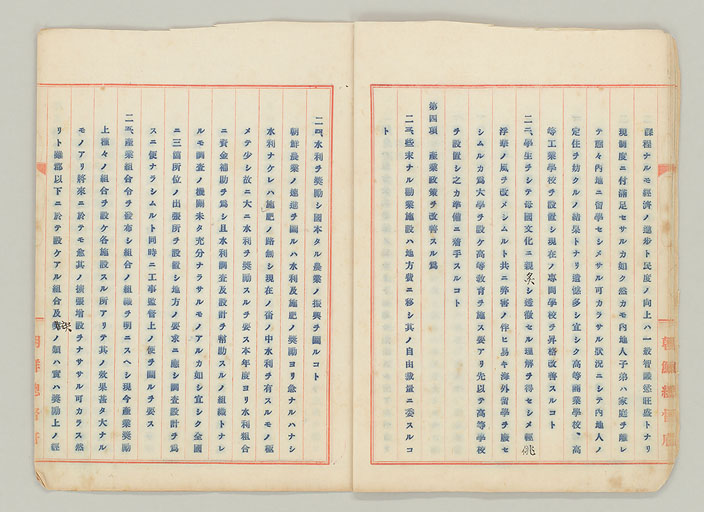 課程ナルモ經濟ノ進步ト民度ノ向上ハ一般智識慾旺盛トナリ
現制度ニ付滿足セサルカ如ク然カモ內地人子弟ハ家庭ヲ離レ
テ態々內地ニ留學セシメサル可カラサル狀況ニシテ內地人ノ
定住ヲ妨クルノ結果トナリ遺憾多シ宜シク高等商業學校、高
等工業學校ヲ設置シ現在ノ專門學校ヲ昇格改善スルコト
二二、學生ヲシテ母國文化ニ親炙シ透徹セル理解ヲ得セシメ輕佻
浮華ノ風ヲ改メシムルト共ニ弊害ノ伴ヒ易キ海外留學ヲ廢セ
シムルカ爲大學ヲ設ケ高等教育ヲ施ス要アリ先以テ高等學校
ヲ設置シ之カ準備ニ着手スルコト
第四項 產業政策ヲ改善スル爲
二三、些末ナル勸業施設ハ地方費ニ移シ其ノ自由裁量ニ委スルコ
ト
朝鮮總督府
二四、水利ヲ獎勵シ國本タル農業ノ振興ヲ圖ルコト
朝鮮農業ノ速進ヲ圖ルハ水利及施肥ノ獎勵ヨリ急ナルハナシ
水利ナケレハ施肥ノ路無シ現在ノ畓ノ中水利ヲ有スルモノ極
メテ少シ故ニ大ニ水利ヲ獎勵スルヲ要ス本年度ヨリ水利組合
ニ資金補助ヲ爲シ且水利調査及設計ヲ幇助スルノ組織トナレ
ルモ調査ノ機關未タ充分ナラサルモノアルカ如シ宜シク全國
ニ三箇所位ノ出張所ヲ設置シ地方ノ要求ニ應シ調査設計ヲ爲
スニ便ナラシムルト同時ニ工事監督上ノ便ヲ圖ルヲ要ス
二五、產業組合令ヲ發布シ組合ノ組織ヲ明ニスヘシ現今產業獎勵
上種々ノ組合ヲ設ケ各施設スル所アリテ其ノ效果甚タ大ナル
モノアリ將來ニ於テモ愈其ノ擴張增設ヲナササル可カラス然
リト雖郡以下ニ於テ設ケアル組合及契ノ類ハ實ハ獎勵上ノ經
朝鮮總督府